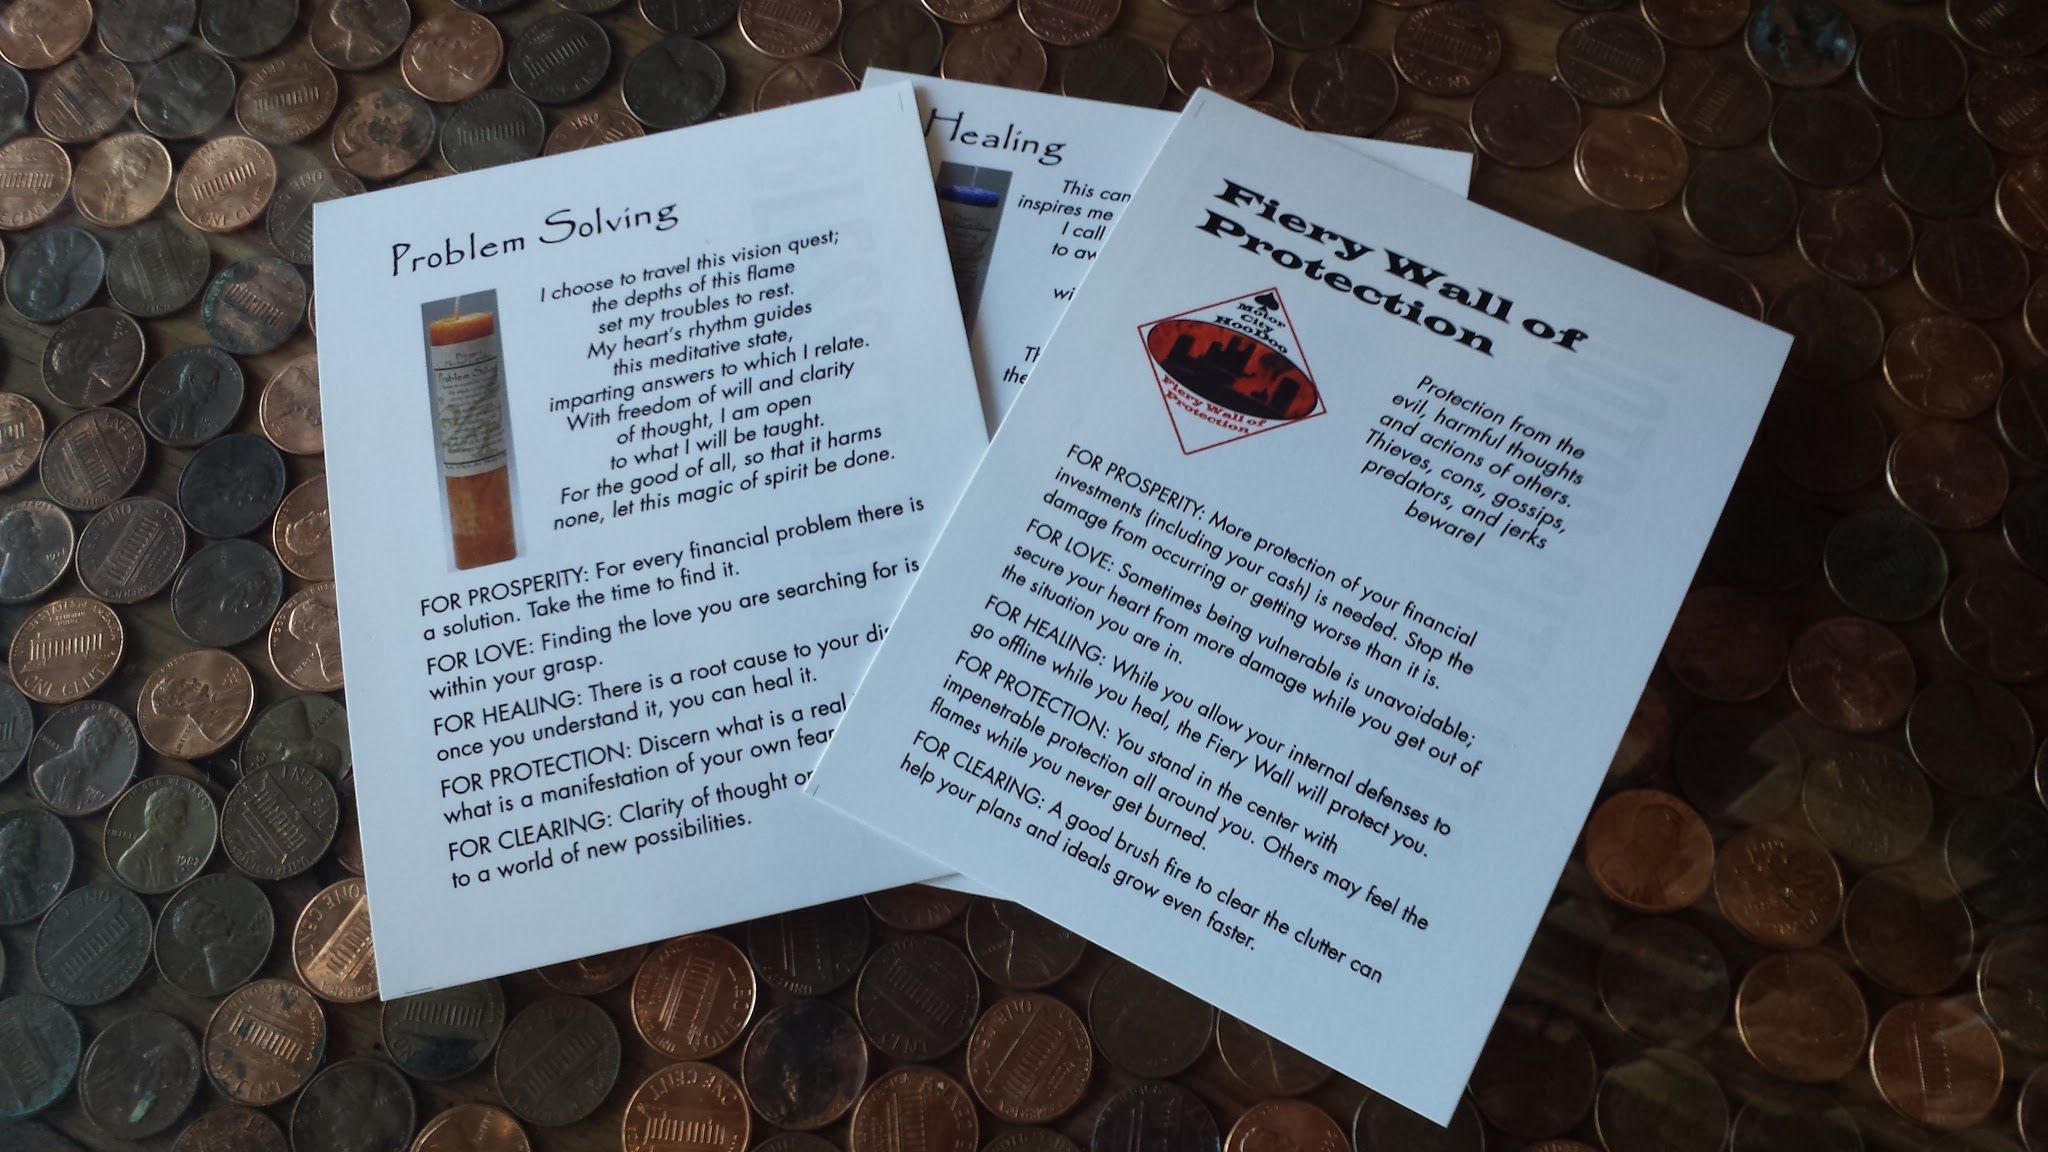 Problem Solving
I choose to travel this vision quest;
the depths of this flame
set my troubles to rest.
My heart's rhythm guides
this meditative state,
imparting answers to which I relate.
With freedom of will and clarity
of thought, I am open
to what I will be taught.
For the good of all, so that it harms
none, let this magic of spirit be done.
Problem Solving
FOR PROSPERITY: For every financial problem there is
a solution. Take the time to find it.
FOR LOVE: Finding the love you are searching for is
within your grasp.
FOR HEALING: There is a root cause to your
once you understand it, you can heal it.
FOR PROTECTION: Discern what is a real
what is a manifestation of your own
FOR CLEARING: Clarity of thought
to a world of new possibilities.
Healing
This
inspires me
I call
to
Fiery Wall of
Protection
Motor
City
HooDoo
Fiery Wall of
Protection
Protection from the
evil, harmful thoughts
and actions of others.
Thieves, cons, gossips,
predators, and jerks
beware!
FOR PROSPERITY: More protection of your financial
investments (including your cash) is needed. Stop the
damage from occurring or getting worse than it is.
FOR LOVE: Sometimes being vulnerable is unavoidable;
secure your heart from more damage while you get out of
the situation you are in.
FOR HEALING: While you allow your internal defenses to
go offline while you heal, the Fiery Wall will protect you.
FOR PROTECTION: You stand in the center with
impenetrable protection all around you. Others may feel the
flames while you never get burned.
FOR CLEARING: A good brush fire to clear the clutter can
help your plans and ideals grow even faster.
ONE CENT